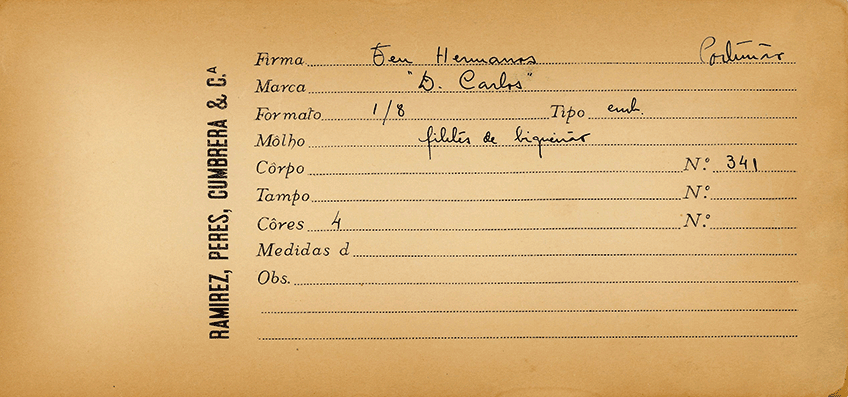 RAMIREZ, PERES, CUMBRERA & C.ᴬ
Firma Feu Hermanos Portimão
Marca "D. Carlos"
Formato 1/8 Tipo emb.
Môlho filetes de biqueirão
Côrpo N.º 341
Tampo N.º
Côres 4 N.º
Medidas d
Obs.